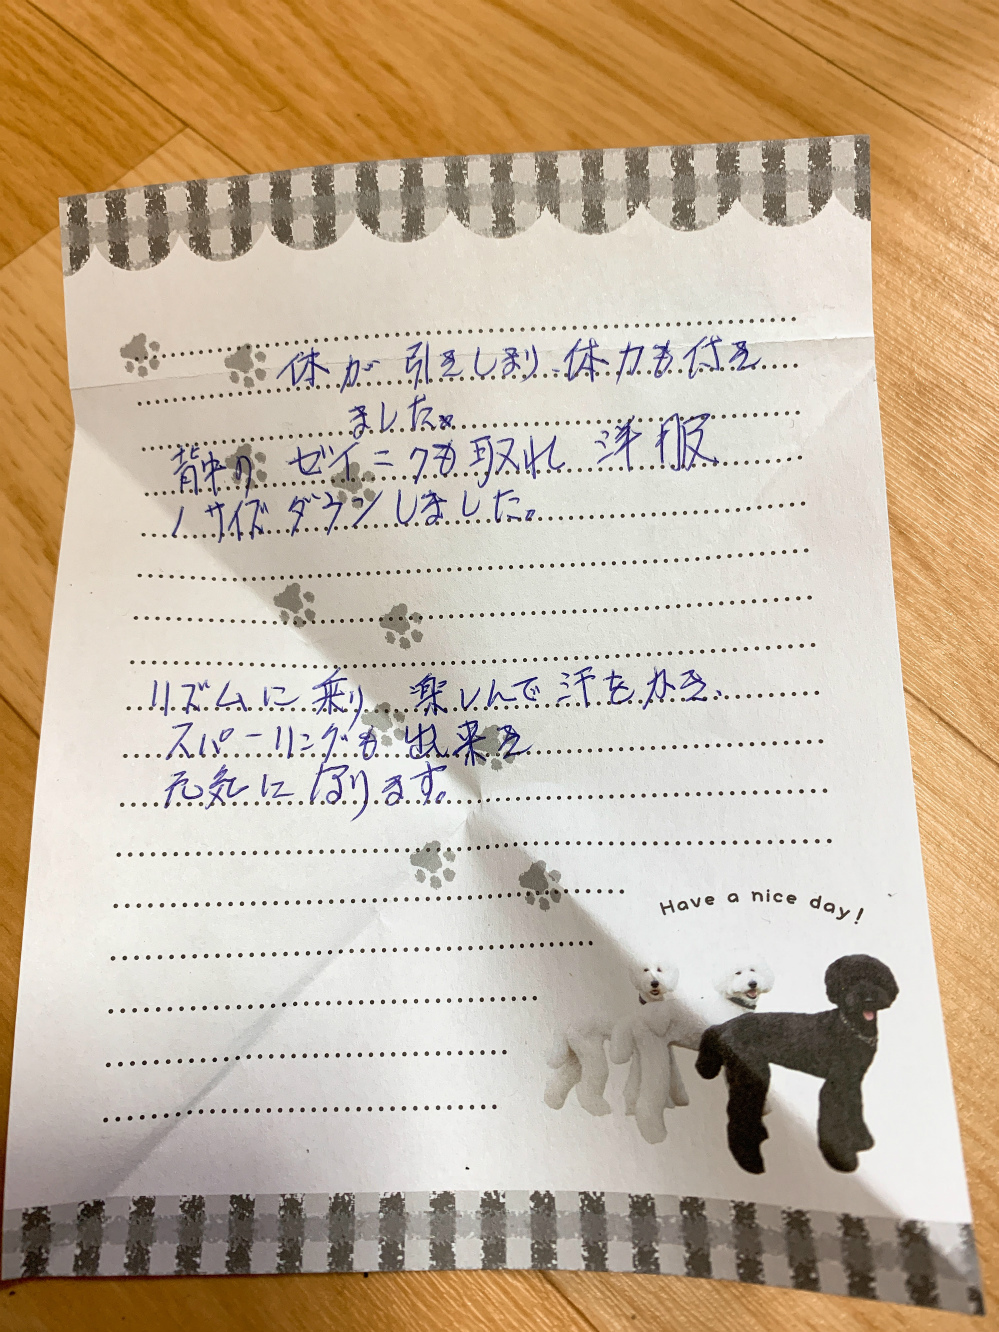 体が引きしまり、体力も付き
ました。
背中のゼイニクも取れ 洋服
1サイズダウンしました。
リズムに乗り 楽しんで汗をかき、
スパーリングも出来き
元気になります。
Have a nice day!